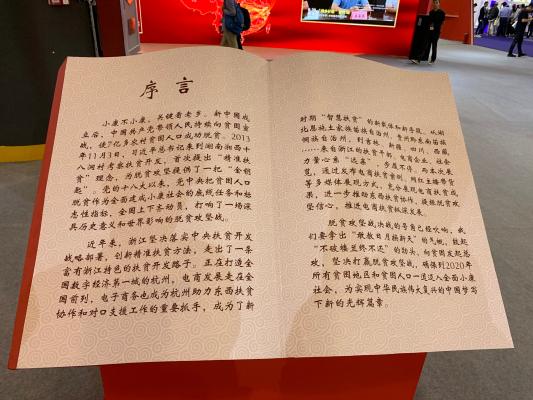 序言
小康不小康，关键看老乡。新中国成
立后，中国共产党带领人民持续向贫困宣
战，使7亿多农村贫困人口成功脱贫。2013
年11月3日，习近平总书记来到湖南湘西十
八洞村考察扶贫开发，首次提出“精准扶
贫”理念，为脱贫攻坚提供了一把“金钥
匙”。党的十八大以来，党中央把贫困人口
脱贫作为全面建成小康社会的底线任务和标
志性指标，全国上下齐动员，打响了一场深
具历史意义和世界影响的脱贫攻坚战。
近年来，浙江坚决落实中央扶贫开发
战略部署，创新精准扶贫方法，走出了一条
富有浙江特色的扶贫开发路子。正在打造全
国数字经济第一城的杭州，电商发展走在全
国前列，电子商务也成为杭州助力东西扶贫
协作和对口支援工作的重要抓手，成为了新
时期“智慧扶贫”的新载体和新手段。从湖
北恩施土家族苗族自治州、贵州黔东南苗族
侗族自治州，到吉林、新疆、四川、西藏
……来自浙江的扶贫干部、电商企业、社会
力量心系“远亲”，步履不停。而本次展
览，通过发布电商扶贫案例、网红主播带货
等多媒体展现方式，充分展现电商扶贫成
果，进一步推动东西扶贫协作，提振脱贫攻
坚信心，推进电商扶贫纵深发展。
脱贫攻坚战决战的号角已经吹响，我
们要拿出“敢教日月换新天”的气概，鼓起
“不破楼兰终不还”的劲头，向贫困发起总
攻，坚决打赢脱贫攻坚战，确保到2020年
所有贫困地区和贫困人口一道迈入全面小康
社会，为实现中华民族伟大复兴的中国梦写
下新的光辉篇章。